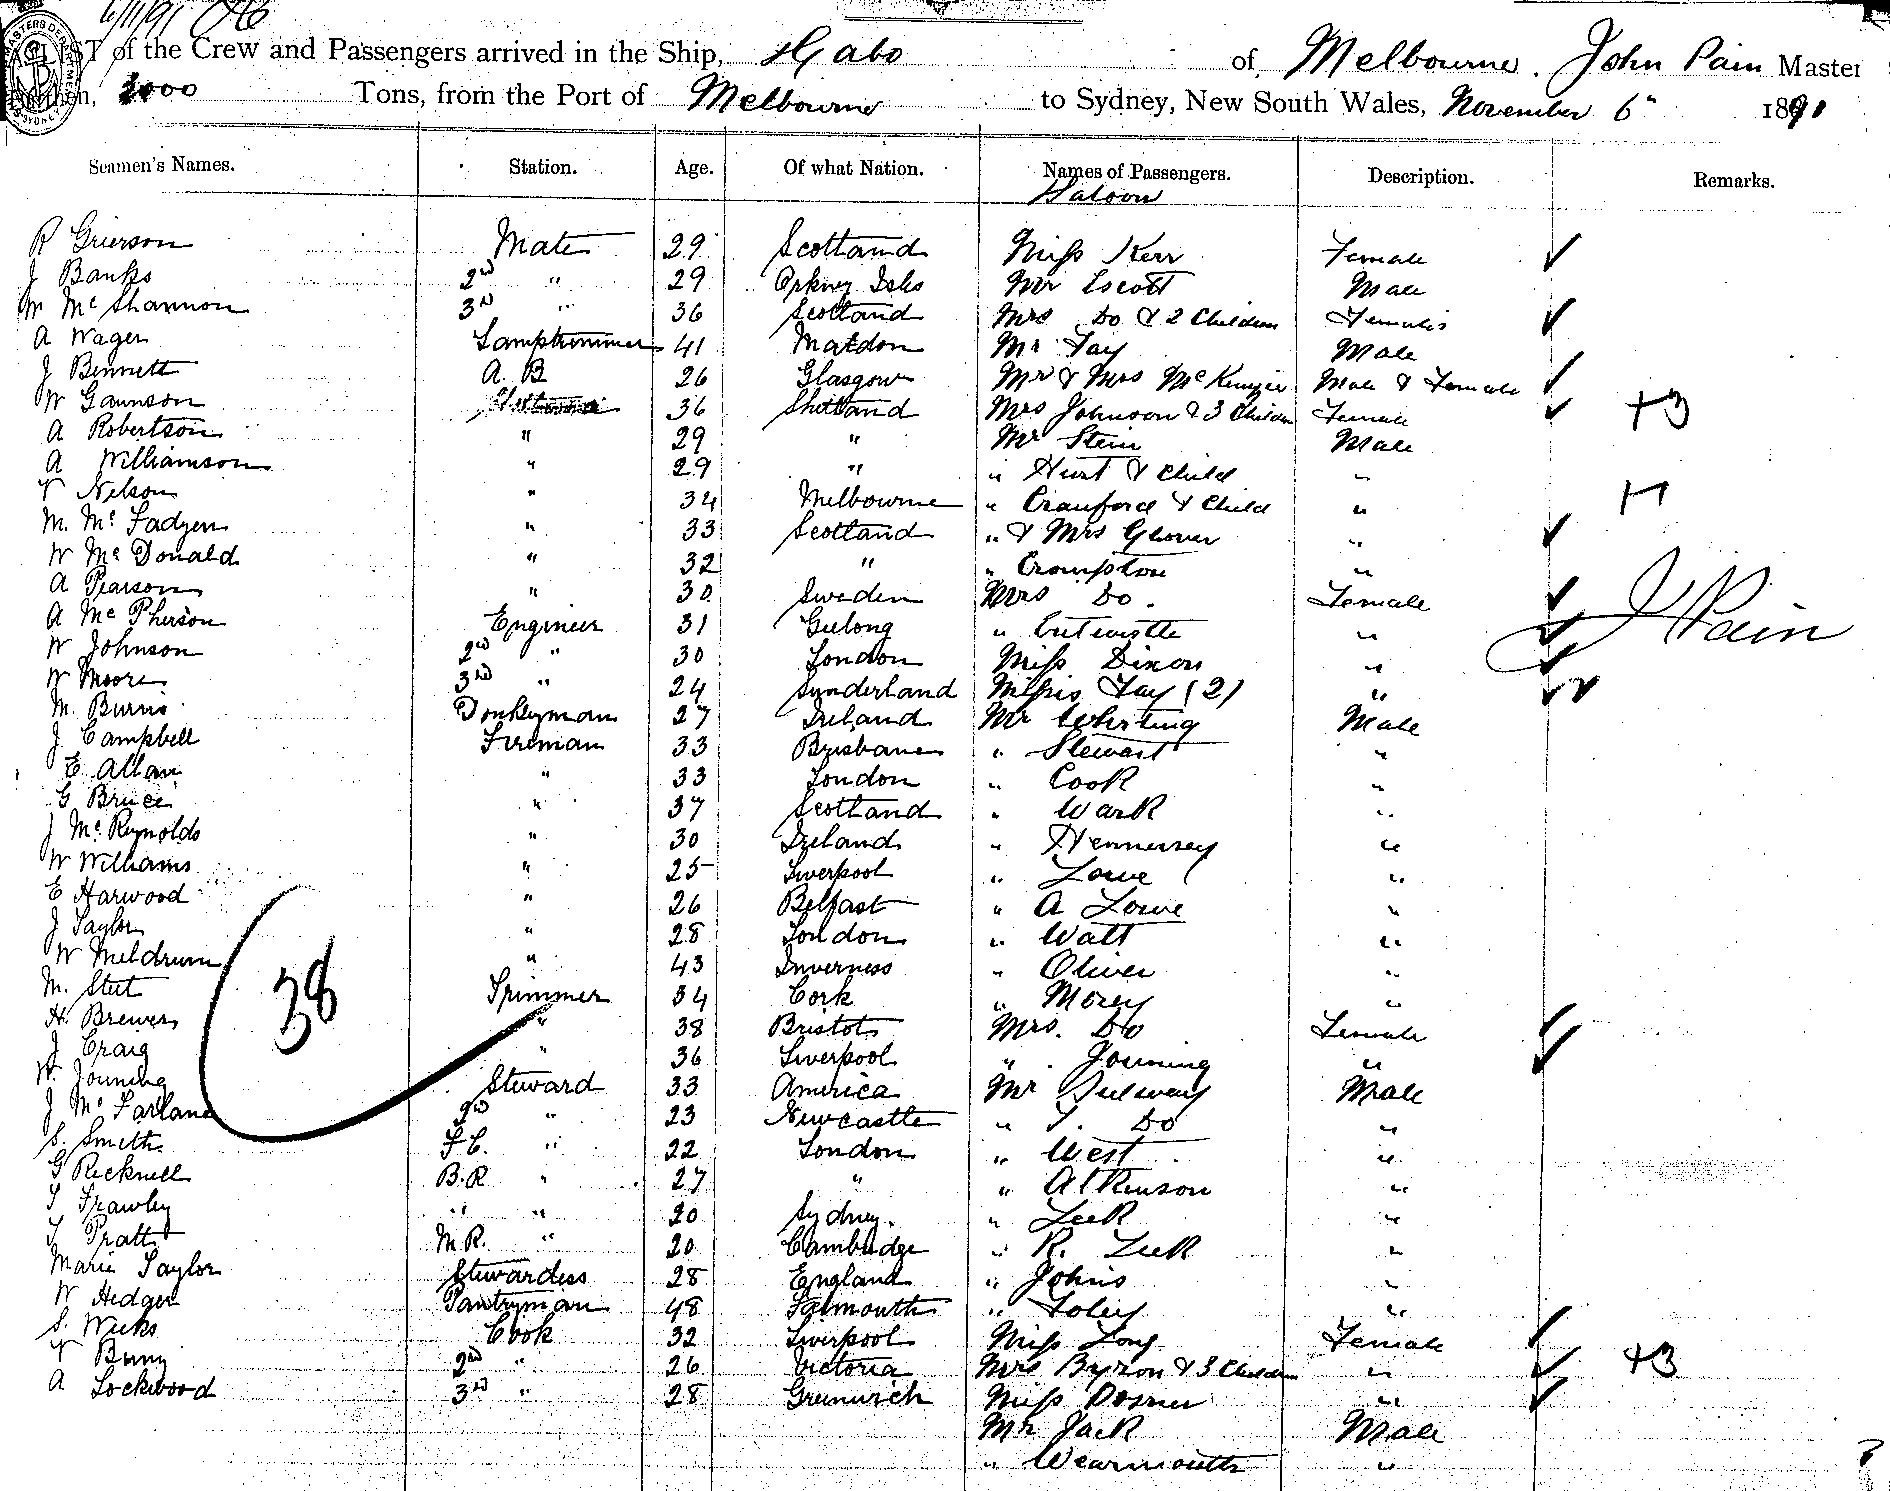 6/11/91
LIST of the Crew and Passengers arrived in the Ship, Gabo of Melbourne. John Pain Master
Burthen, 2000 Tons, from the Port of Melbourne to Sydney, New South Wales, November 6th 1891
Seamen's Names. Station. Age. Of what Nation. Names of Passengers. Description. Remarks.
Saloon
R Grierson Mate 29 Scotland Miss Kerr Female
J Banks 2nd " 29 Orkney Isles Mr Escott Male
Mc Shannon 3rd " 36 Scotland Mrs Do & 2 Children Females
A Wager Lamptrimmer 41 Maldon Mr Fay Male
J Bennett A. B 26 Glasgow Mr & Mrs McKenzie Male & Female
W Gaunson 36 Shetland Mrs Johnson & 3 Children Female +3
A Robertson " 29 " Mr Stein Male
A Williamson " 29 " " Hurst & Child "
Nelson " 34 Melbourne " Crauford & Child "
M. Mc Fadyen " 33 Scotland " & Mrs Glover "
W Mc Donald " 32 " " Crompton "
A Pearson " 30 Sweden Mrs Do. Female
A Mc Pherson Engineer 31 Geelong " Entwistle " J Pain
W Johnson 2nd " 30 London Miss Dixon "
W Moore 3rd " 24 Sunderland Misses Fay (2) "
M. Burns Donkeyman 27 Ireland Mr Whiting Male
J Campbell Fireman 33 Brisbane " Stewart "
E Allan " 33 London " Cook "
G Bruce " 37 Scotland " Wark "
J McReynolds " 30 Ireland " Hennessey "
W Williams " 25 Liverpool " Lowe "
E Harwood " 26 Belfast " A Lowe "
J Taylor " 28 London " Watt "
W Meldrum " 43 Inverness " Oliver "
M. Steet Trimmer 34 Cork " Morey "
38
H. Brewer " 38 Bristol Mrs. Do Female
J Craig " 36 Liverpool " Jouning "
H. Jouning Steward 33 America Mr Male
J Mc Farlane 2nd " 23 Newcastle " T. Do "
S. Smith F.C. " 22 London " West "
G Recknell B.R " 27 " " Atkinson "
T Frawley " " 20 Sydney. " Leek "
T Pratt M.R. " 20 Cambridge " R. Leek "
Marie Taylor Stewardess 28 England " Johns "
W Hedger Pantryman 48 Falmouth " Foley "
S. Weeks Cook 32 Liverpool Miss Long Female
Buny 2nd " 26 Victoria Mrs Byron & 3 Children " +3
A Lockwood 3rd " 28 Greenwich Miss Posner "
Mr Jack Male
" Wearmouth "